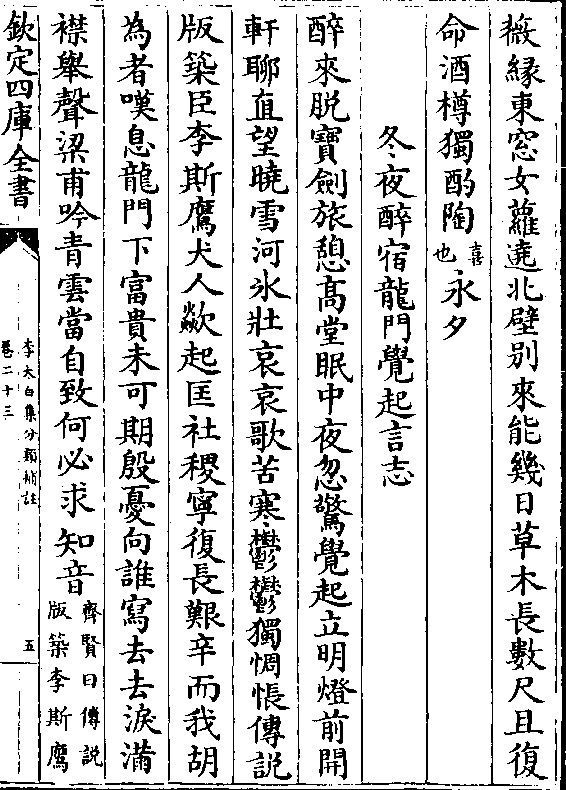 薇縁東窓女蘿遶北壁别來能幾日草木長數尺且復
命酒樽獨酌陶喜也永夕
冬夜醉宿龍門覺起言志
醉來脱寶劍旅憩髙堂眠中夜忽驚覺起立明燈前開
軒聊直望曉雪河氷壯哀哀歌苦寒鬱鬱獨惆悵傳説
版築臣李斯鷹犬人歘起匡社稷寧復長艱辛而我胡
為者嘆息龍門下富貴未可期殷憂向誰寫去去淚滿
襟舉聲梁甫吟青雲當自致何必求知音齊賢曰傳説
版築李斯鷹
欽定四庫全書
李太白集分類補註
卷二十三
五